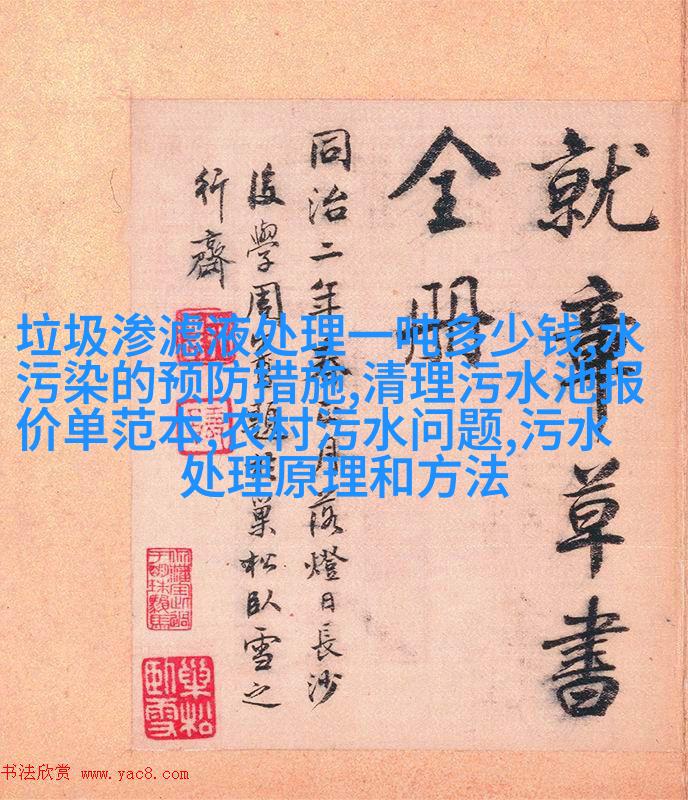 就章草書
全冊
同治二年春正月落燈日長沙
後學周壽昌題於巢松臥雪之
行齋
垃圾渗滤液处理一吨多少钱,水
污染的预防措施,清理污水池报
价单范本,农村污水问题,污水
处理原理和方法
巢松
臥雪
书法欣赏 www.yac8.com